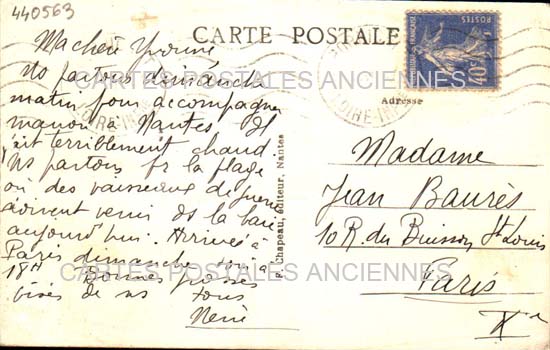 440563
CARTE POSTALE
Adresse
POSTES
40c
CARTES POSTALES ANCIENNES
Ma chère Yvonne
Ns partons dimanche
matin pour accompagner
manon à Nantes Il
fait terriblement chaud
Ns partons pr la plage
où des vaisseaux de guerre
doivent venir ds la baie
aujourd'hui. Arrivée à
Paris dimanche soir à
18H Bonnes grosses
bises de ns tous
René
Chapeau, éditeur, Nantes
Madame
Jean Baurès
10 R. du Buisson St Louis
Paris
Xe
CARTES POSTALES ANCIENNES